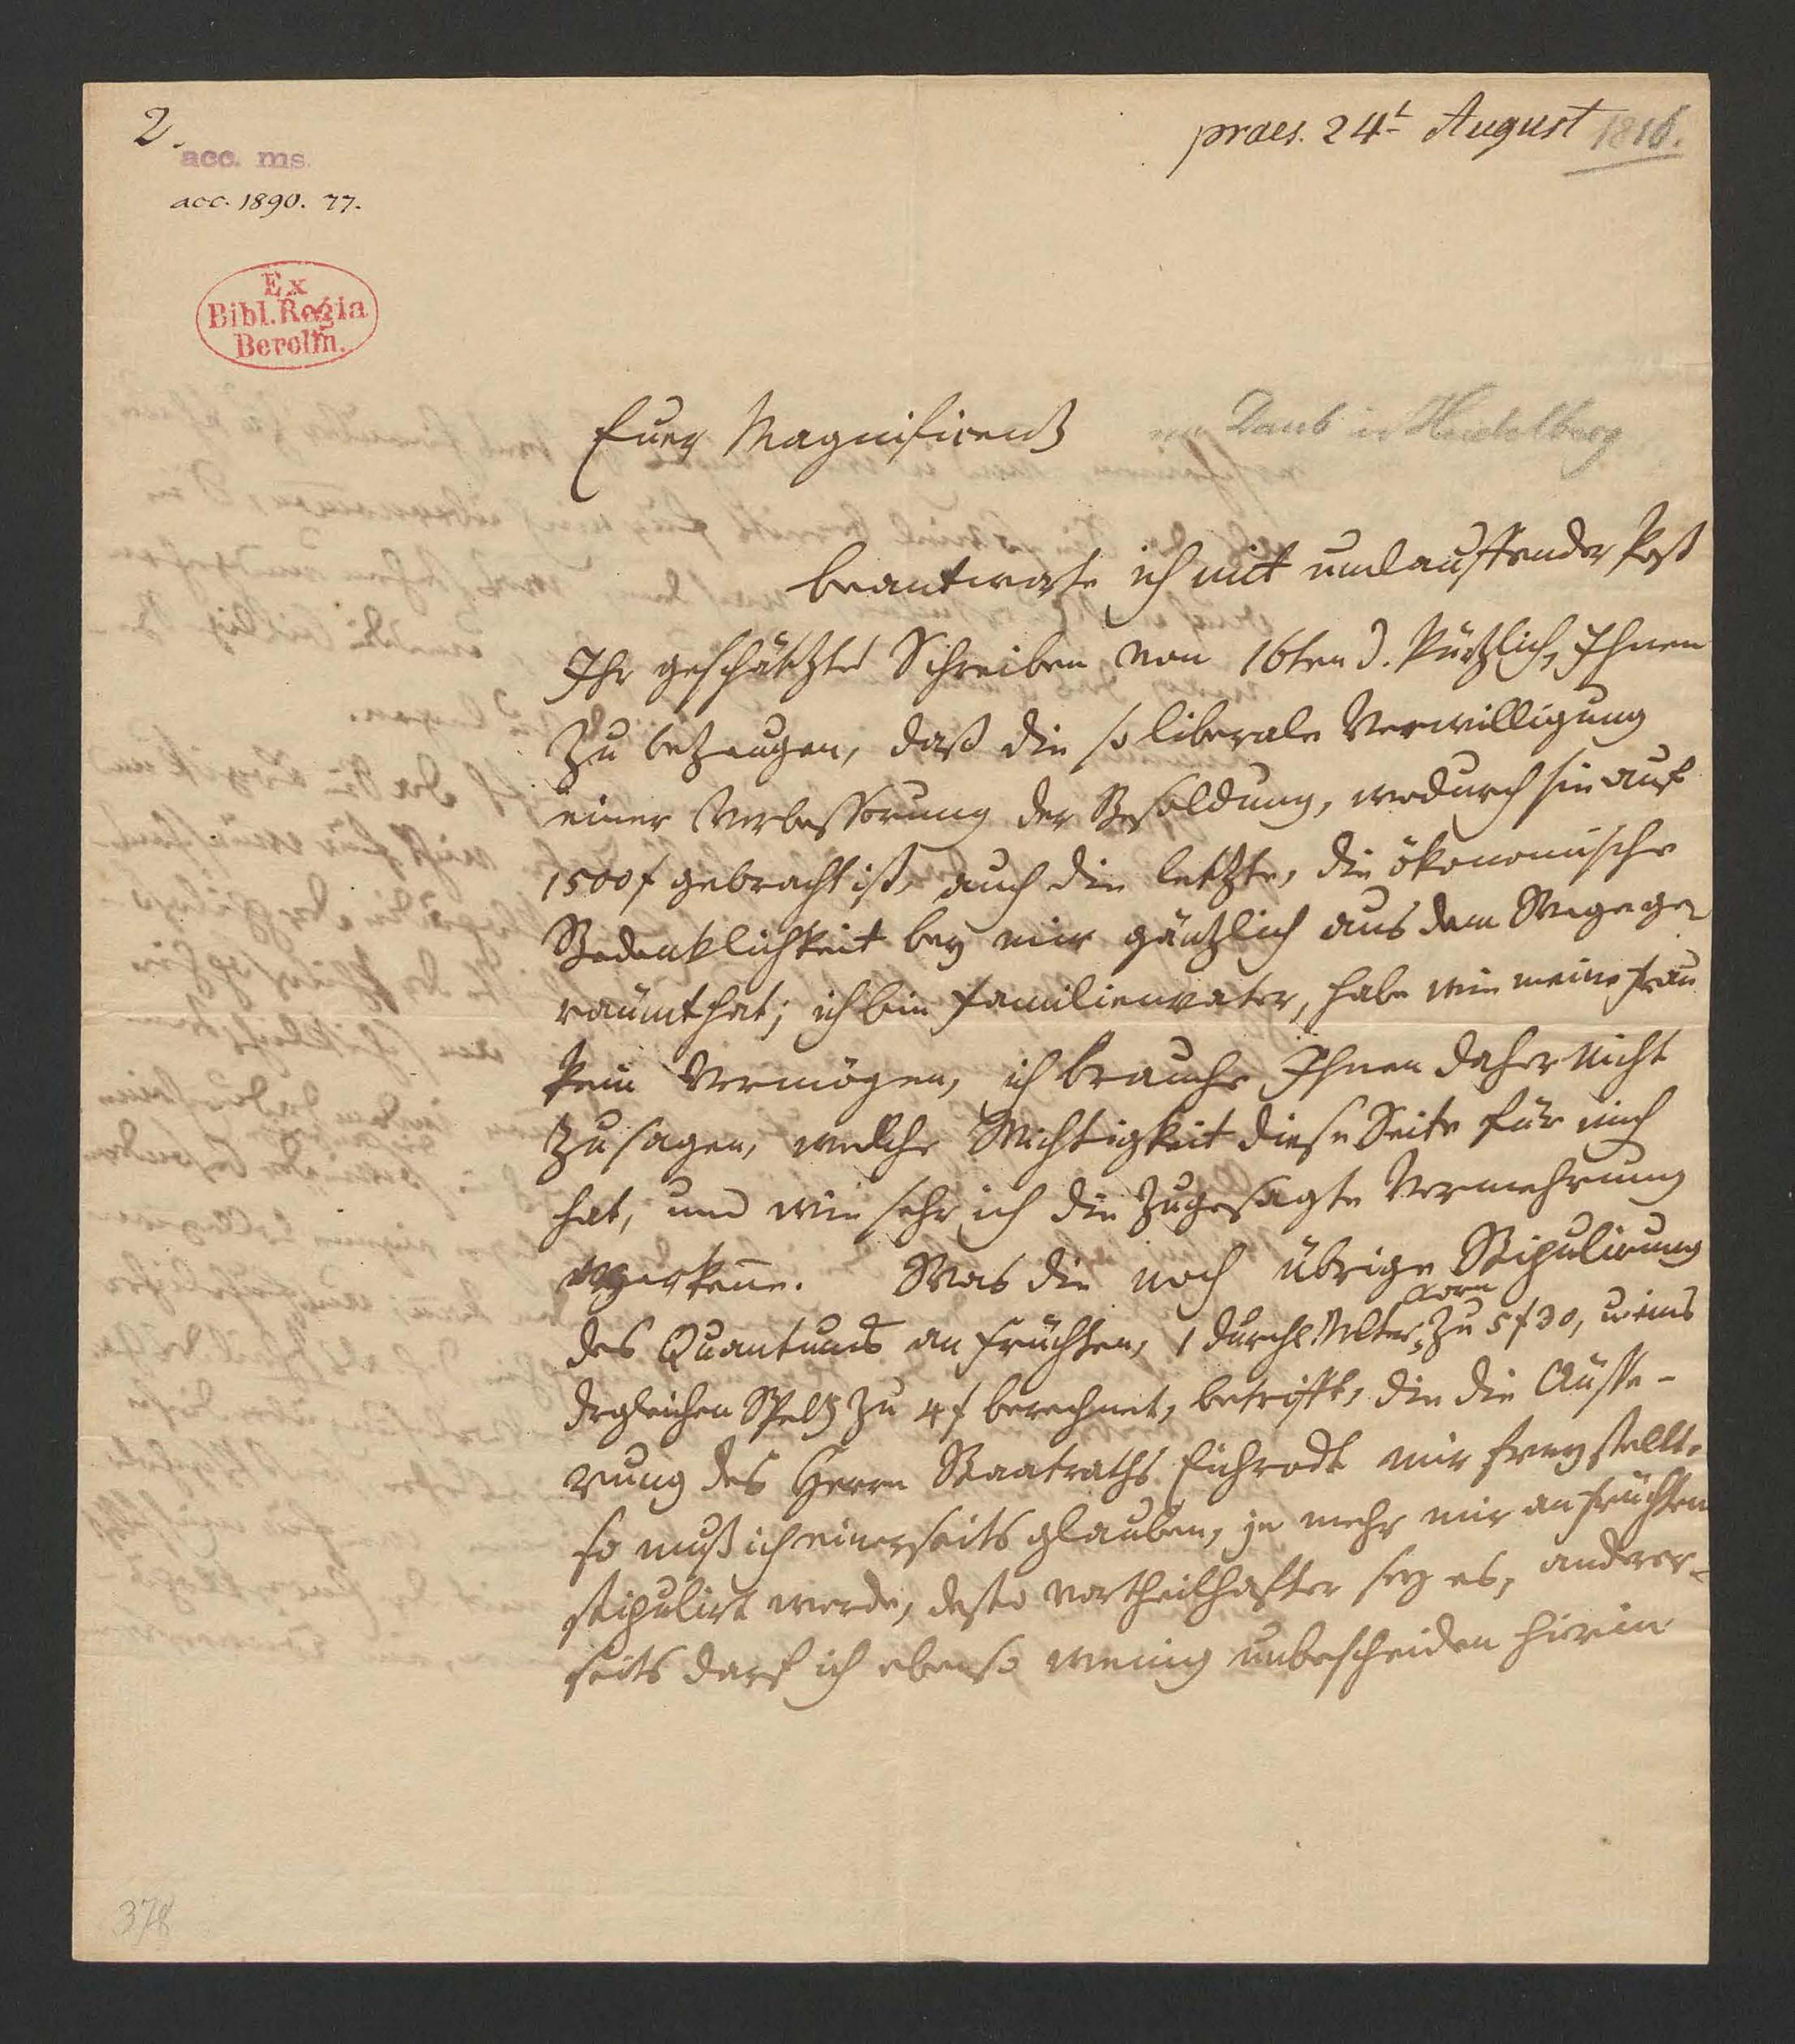 2.
acc. ms.
acc. 1890. 77.
praes. 24t August 1816.
Ex
Bibl. Regia
Berolin.
Euer Magnificenz
an Daub in Heidelberg
beantworte ich mit umlauffender Post
Ihr geschätztes Schreiben vom 16ten d. kürzlich, Ihnen
zu bezeugen, daß die so liberale Verwilligung
einer Verbesserung der Besoldung, wodurch sie auf
1500f gebracht ist, auch die letzte, die ökonomische
Bedenklichkeit bey mir gäntzlich aus dem Wege ge-
räumt hat; ich bin Familienvater, habe wie meine Frau
kein Vermögen, ich brauche Ihnen daher nicht
zu sagen, welche Wichtigkeit diese Seite für mich
hat, und wie sehr ich die zugesagte Vermehrung
erkenne. Was die noch übrige Stipulirung
Korn
des Quantums an Früchten, 1 durchl. Mltr, zu 5f30, u eins
dergleichen Spelz zu 4f berechnet, betrifft, die die Äusse-
rung des Herrn Staatraths Eichrodt mir frey stellt,
so muß ich einerseits glauben, je mehr mir an Früchten
stipulirt werde, desto vortheilhafter sey es, anderer-
seits darf ich ebenso wenig unbescheiden hierin
378